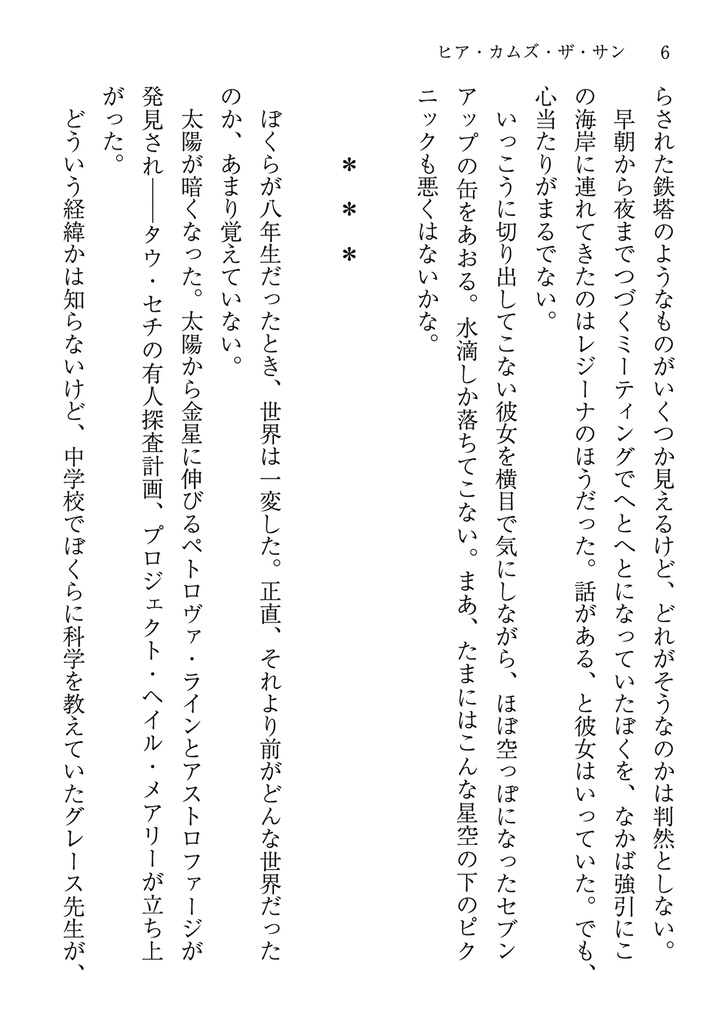 ヒア・カムズ・ザ・サン 6
らされた鉄塔のようなものがいくつか見えるけど、どれがそうなのかは判然としない。
早朝から夜までつづくミーティングでへとへとになっていたぼくを、なかば強引にこ
の海岸に連れてきたのはレジーナのほうだった。話がある、と彼女はいっていた。でも、
心当たりがまるでない。
いっこうに切り出してこない彼女を横目で気にしながら、ほぼ空っぽになったセブン
アップの缶をあおる。水滴しか落ちてこない。まあ、たまにはこんな星空の下のピク
ニックも悪くはないかな。
＊＊＊
ぼくらが八年生だったとき、世界は一変した。正直、それより前がどんな世界だった
のか、あまり覚えていない。
太陽が暗くなった。太陽から金星に伸びるペトロヴァ・ラインとアストロファージが
発見され――タウ・セチの有人探査計画、プロジェクト・ヘイル・メアリーが立ち上
がった。
どういう経緯かは知らないけど、中学校でぼくらに科学を教えていたグレース先生が、